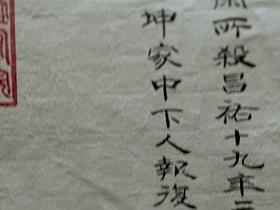 所殺昌祐十九年
坤家中下人報復